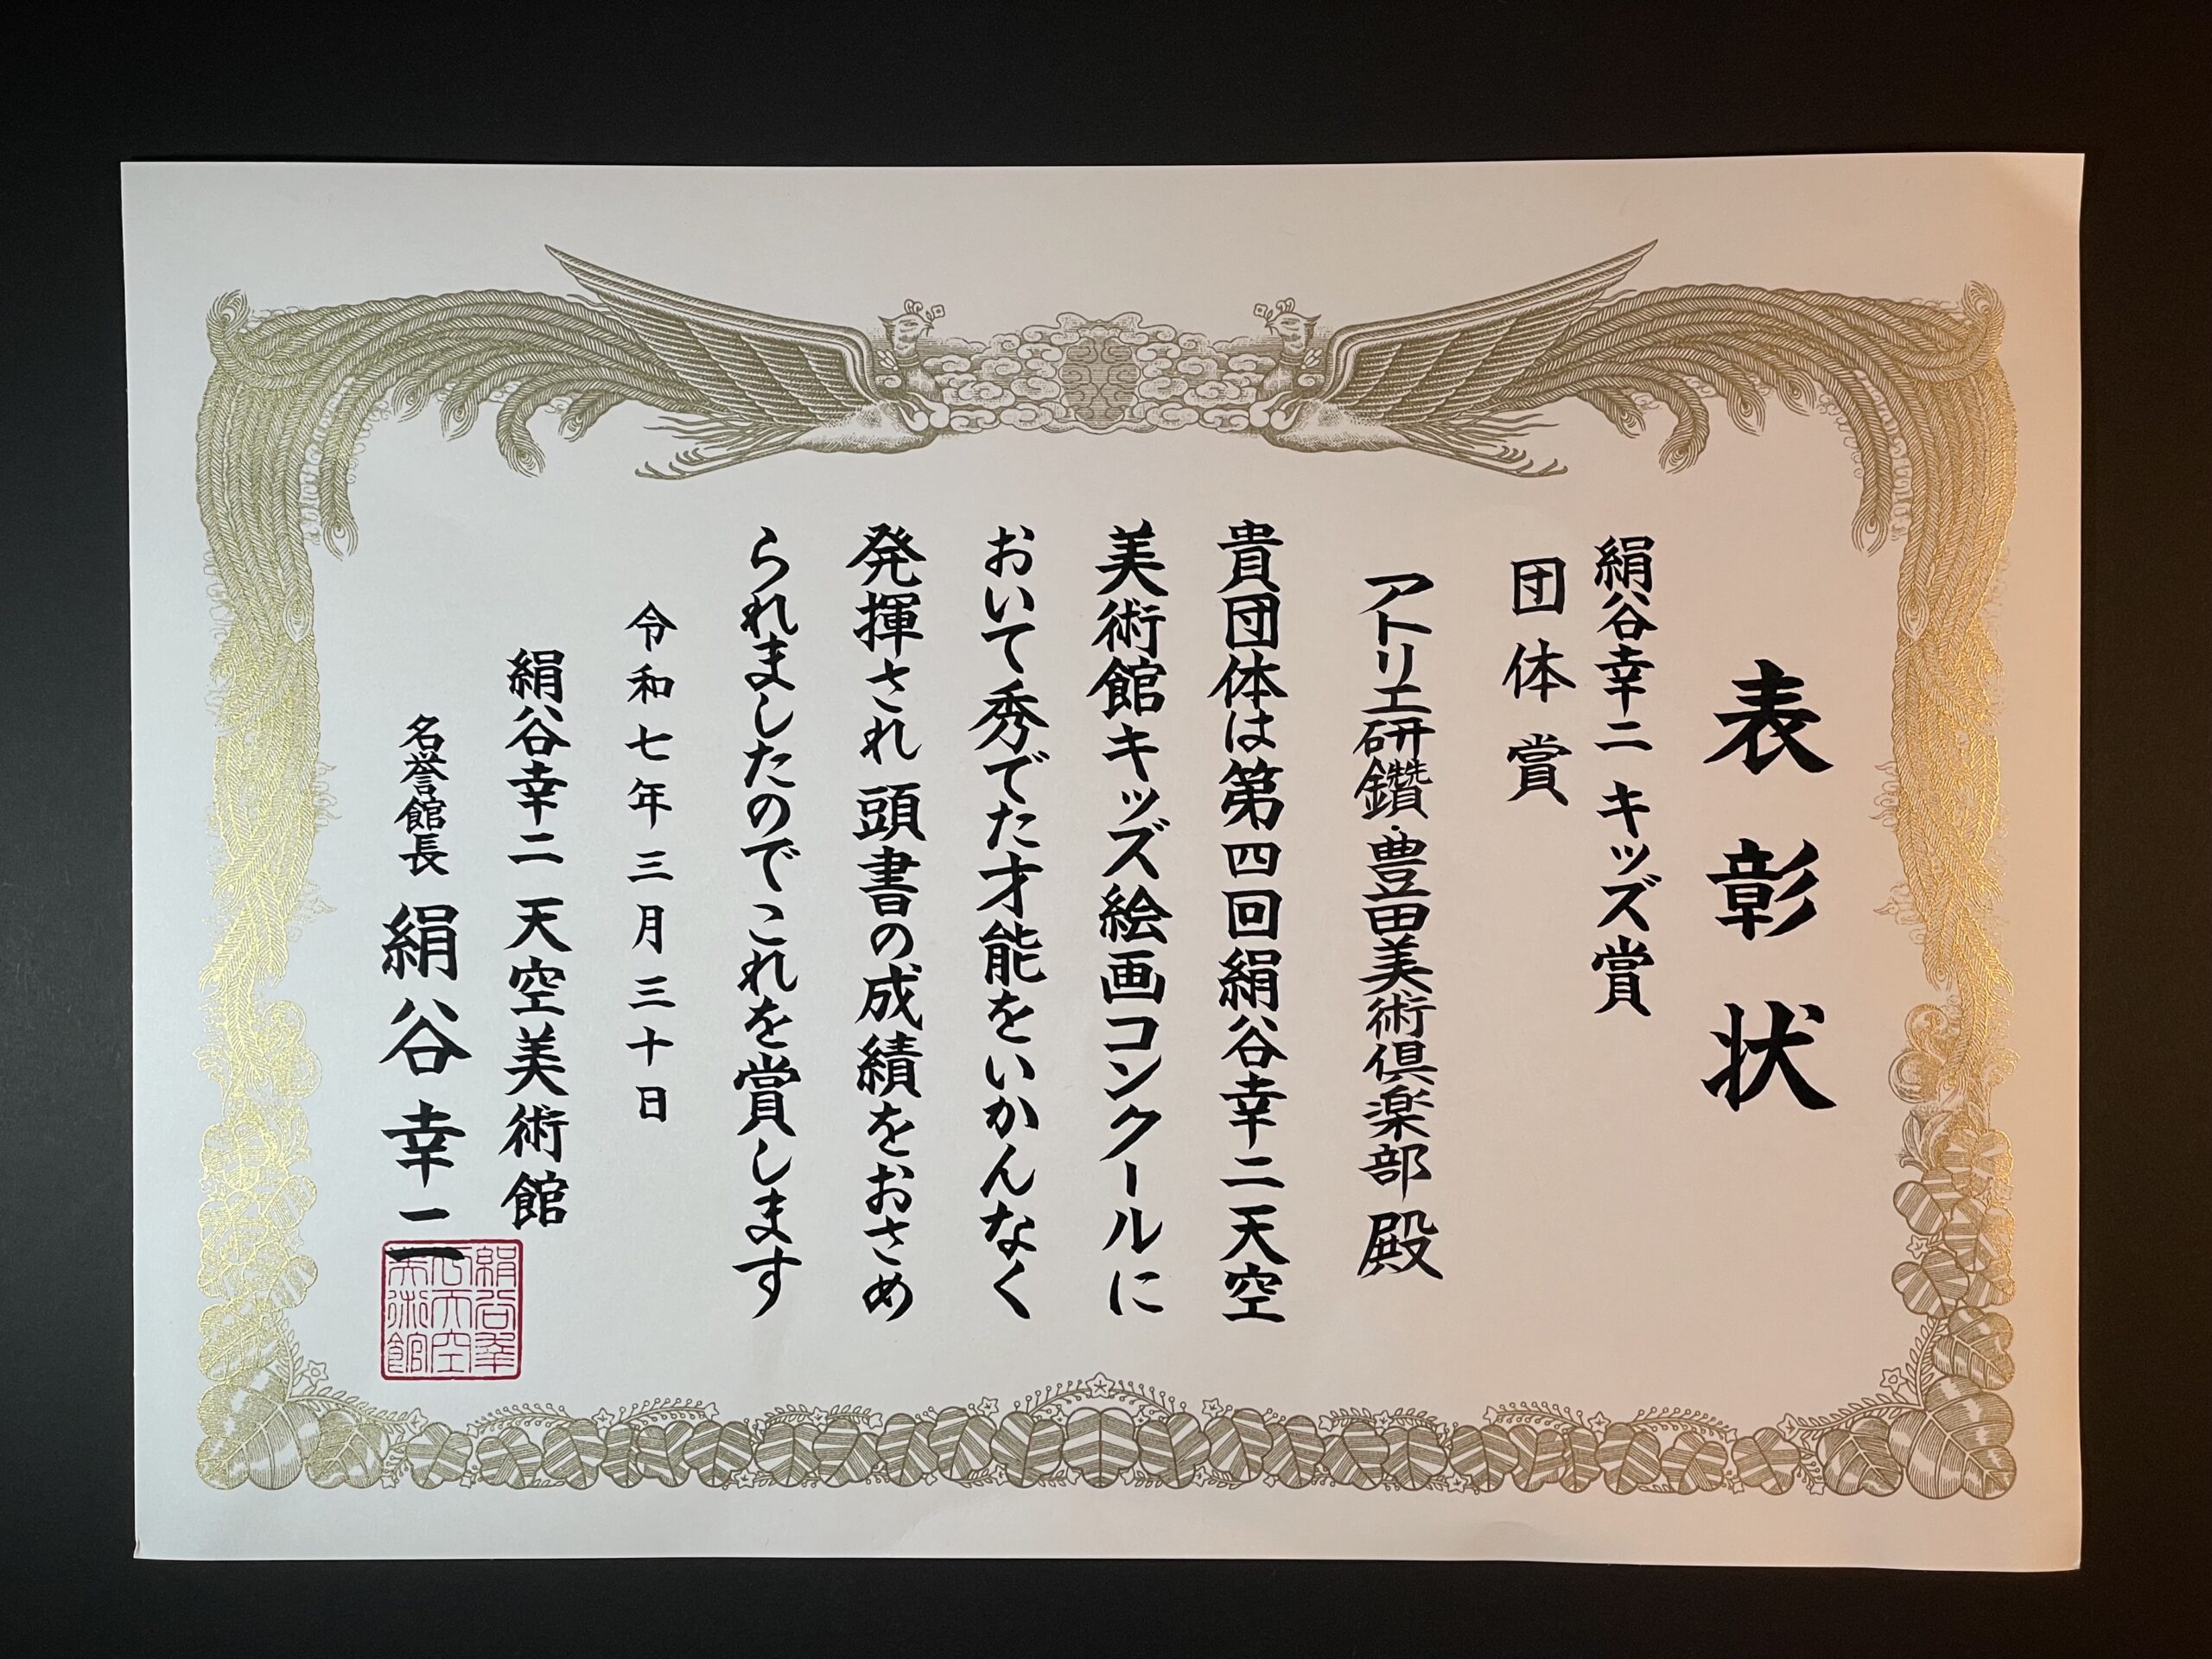 表彰状
絹谷幸二 キッズ賞
団体賞
アトリエ研鑽・豊田美術倶楽部 殿
貴団体は第四回絹谷幸二天空
美術館キッズ絵画コンクールに
おいて秀でた才能をいかんなく
発揮され 頭書の成績をおさめ
られましたのでこれを賞します
令和七年三月三十日
絹谷幸二 天空美術館
名誉館長 絹谷幸二
絹谷幸
二天空
美術館